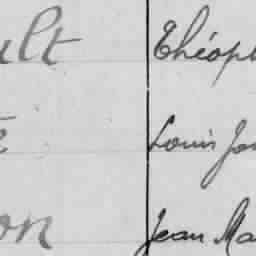 ult Théoph
e Louis Jos
on Jean Ma